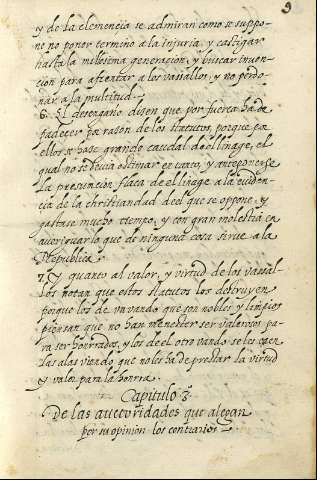 9
y de la clemencia se admiran como se suppo-
ne no poner termino a la injuria, y castigar
hasta la milesima generacion, y buscar inuen-
cion para afrentar a los vasallos, y no perdo-
nar a la multitud.
6. El desengaño disen que por fuerça ha de
padecer pa rason de los statutos, porque pa
ellos se hase grande caudal de el linage, el
qual no se deuia estimar en tanto, y anteponerse
la presuncion flaca de el linage a la euiden-
cia de la christiandad de el que se oppone, y
gastase mucho tiempo, y con gran molestia en
aueriguarlo que de ninguna cosa sirue a la
Republica.
7. Y quanto al valor, y virtud de los vasal-
los notan que estos statutos los destruyen
porque los de un vando que son nobles y limpios
piensan que no han menester ser valerosos pa-
ra ser honrrados, y los de el otro vando se les caen
las alas viendo que no les ha de prestar la virtud
y valor para la honrra.
Capitulo 3.
De las auctoridades que alegan
por su opinion los contrarios.